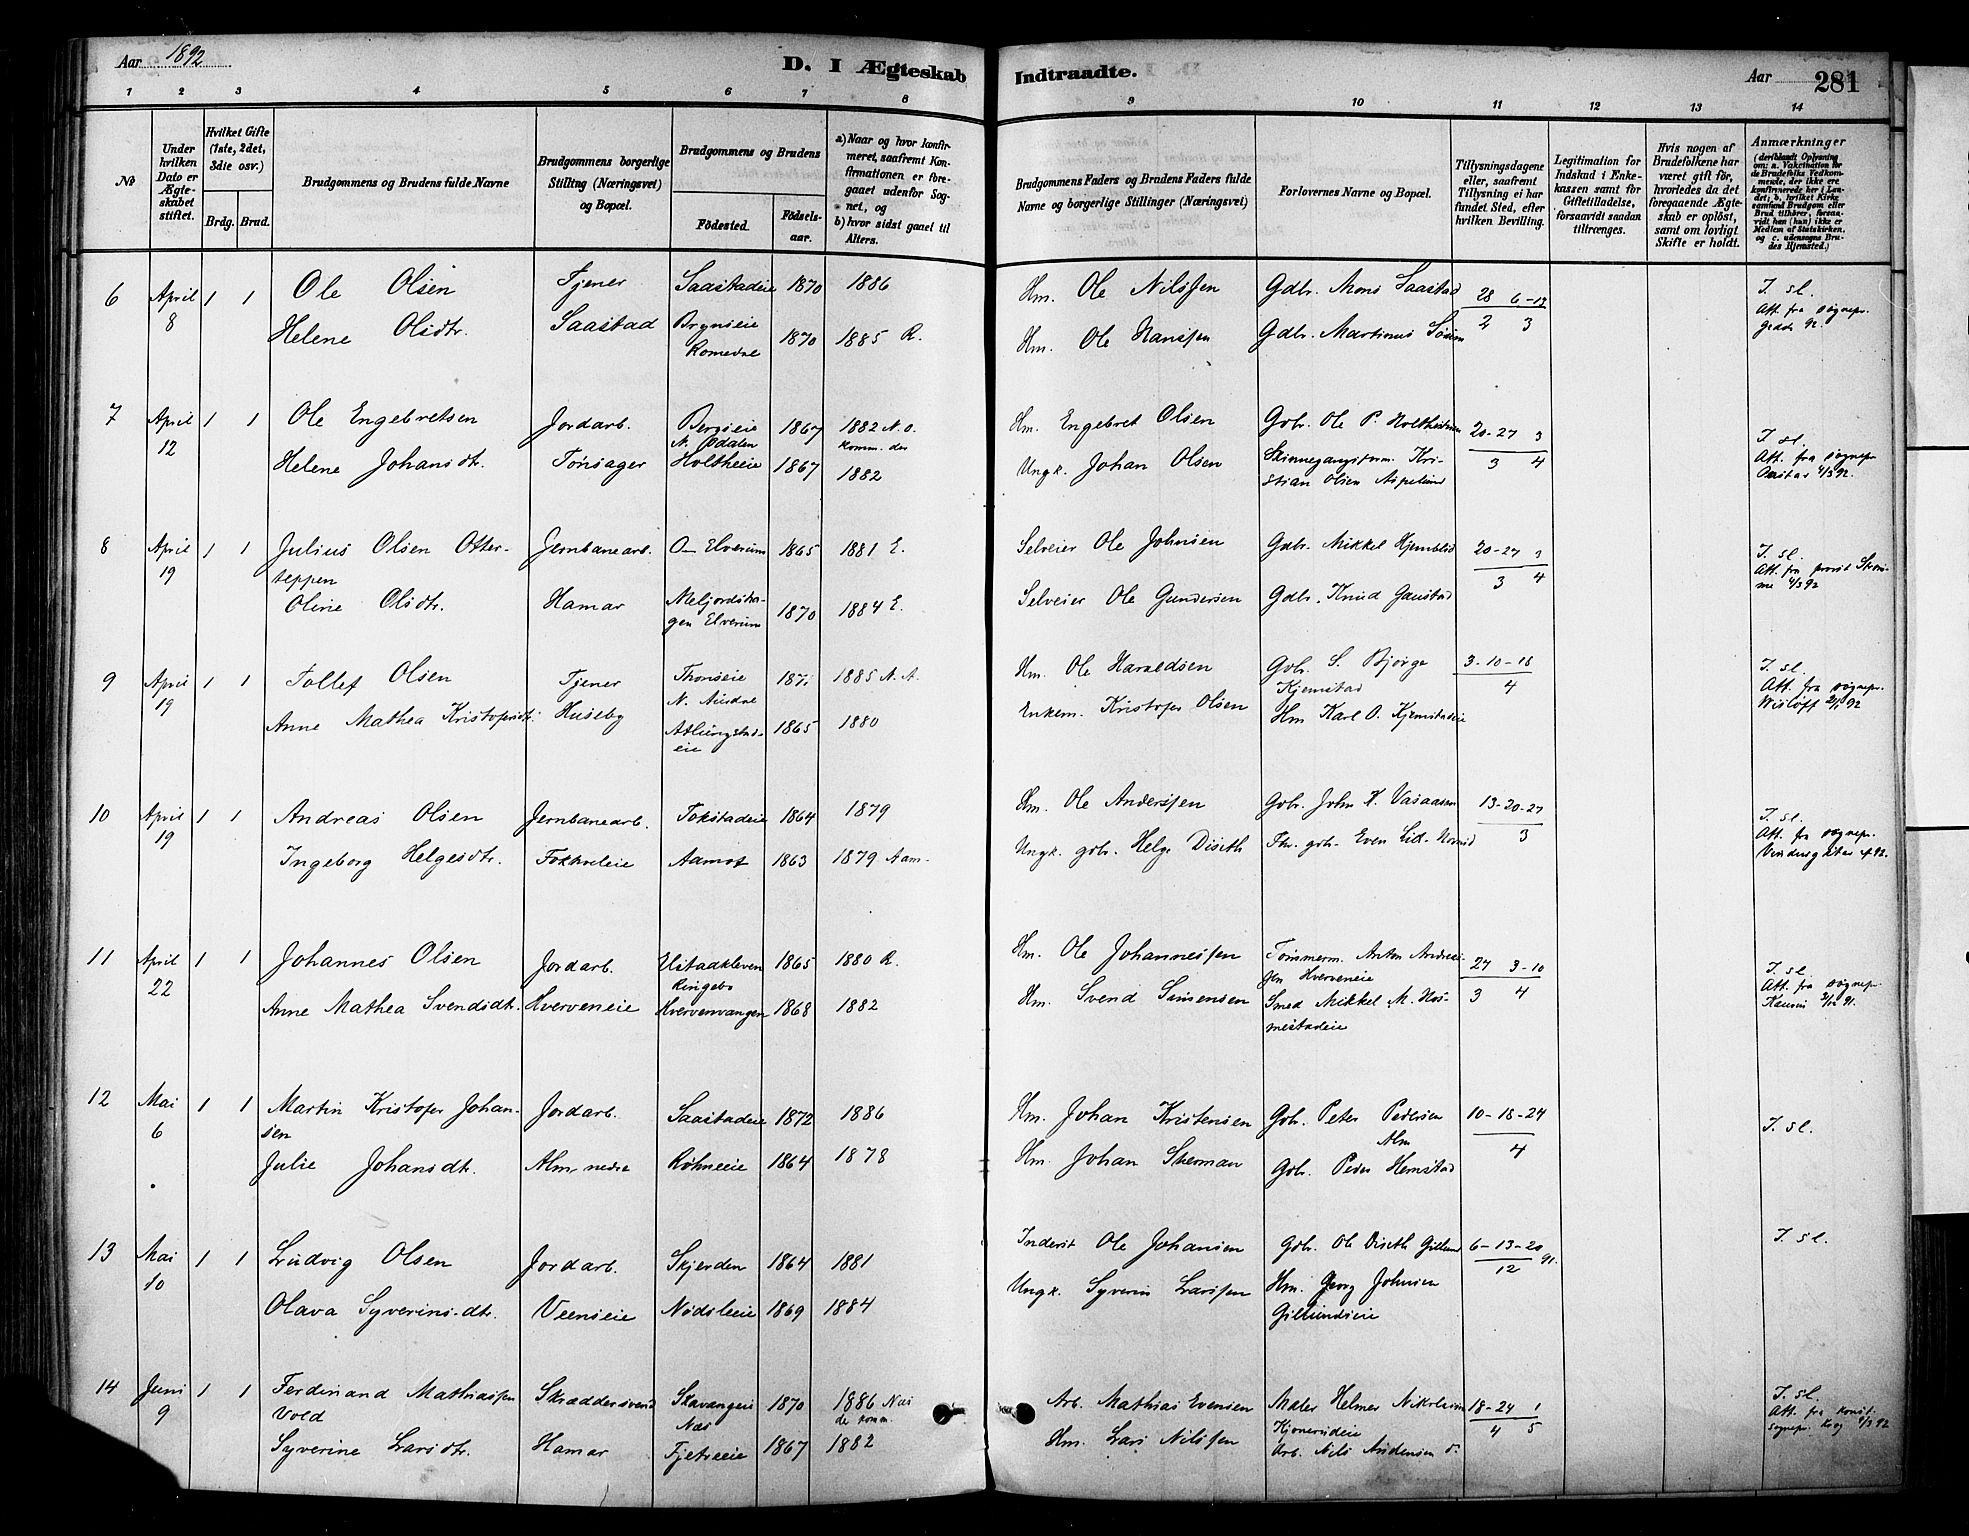 Aar 1892
D. I Ægteskab
Indtraadte.
Aar
281
1 2 3 4 5 6 7 8 9 10 11 12 13 14
No
Under hvilken Dato er Ægteskabet stiftet.
Hvilket Gifte (1ste, 2det, 3die osv.)
Brdg. Brud.
Brudgommens og Brudens fulde Navne
Brudgommens borgerlige Stilling (Næringsvei) og Bopæl.
Brudgommens og Brudens
Födested.
Födselsaar.
a) Naar og hvor konfirmeret, saafremt Konfirmationen er foregaaet udenfor Sognet, og
b) hvor sidst gaaet til Alters.
Brudgommens Faders og Brudens Faders fulde Navne og borgerlige Stillinger (Næringsvei)
Forlovernes Navne og Bopæl.
Tillysningsdagene eller, saafremt Tillysning ei har fundet Sted, efter hvilken Bevilling.
Legitimation for Indskud i Enkekassen samt for Giftetilladelse, forsaavidt saadan tiltrænges.
Hvis nogen af Brudefolkene har været gift för, hvorledes da det foregaaende Ægteskab er oplöst, samt om lovligt Skifte er holdt.
Anmærkninger
(deriblandt Oplysning om: a. Vakcination for de Brudefolks Vedkommende, der ikke ere konfirmerede her i Landet; b. hvilket Kirkesamfund Brudgom eller Brud tilhörer, forsaavidt han (hun) ikke er Medlem af Statskirken, og c. udensogns Brudes Hjemsted.)
6 April 8 1 1 Ole Olsen Tjener Saastadeie 1870 1886 Hm. Ole Nilssen Gdbr. Mons Saastad 28 6-13 T. sl.
Helene Olsdtr. Saastad Brynseie Romedal 1870 1885 R. Hm. Ole Hanssen Gdbr. Martinus 2 3 Att. fra sognepr.
7 April 12 1 1 Ole Engebretsen Jordarb. Bergseie N. Odalen 1867 1882 N.O. Hm. Engebret Olsen Gdbr. Ole P. 20-27 3 T. sl.
Helene Johansdtr. Tönsager Holtheeie 1867 komm. der 1882 Ungk. Johan Olsen Kristian Olsen 3 4 Att. fra sognepr.
8 April 19 1 1 Julius Olsen Otterteppen Jernbanearb. Elverum 1865 1881 E. Selveier Ole Johnsen Gdbr. Mikkel 20-27 3 T. sl.
Oline Olsdtr. Hamar Elverum 1870 1884 E. Selveier Ole Gundersen Gdbr. Knud Gaustad 3 4 Att. fra provst
9 April 19 1 1 Tollef Olsen Tjener Thonseie N. Aurdal 1871 1885 N.A. Hm. Ole Haraldsen Gdbr. S. Bjørge Kjemstad 3-10-18 T. sl.
Anne Mathea Kristofersdtr. Huseby 1865 1880 Enkem. Kristofer Olsen Hm Karl O. Kjemstadeie 4 Att. fra sognepr.
10 April 19 1 1 Andreas Olsen Jernbanearb. Tokstadeie 1864 1879 Hm. Ole Anderssen Gdbr. John K. Vasaasen 13-20-27 T. sl.
Ingeborg Helgesdtr. Aamot 1863 1879 Aam. Ungk. gdbr. Helge Diseth Even 3 Att. fra sognepr.
11 April 22 1 1 Johannes Olsen Jordarb. Elstadkleven Ringebo 1865 1880 R. Hm. Ole Johannessen Tømmerm. Anton Hverveneie 27 3-10 T. sl.
Anne Mathea Svendsdtr. Hverveneie Hvervenvangen 1868 1882 Hm. Svend Simensen Smed Mikkel M. 3 4 Att. fra sognepr.
12 Mai 6 1 1 Martin Kristofer Johansen Jordarb. Saastadeie 1872 1886 Hm. Johan Kristensen Gdbr. Peter Pedersen Alm 10-18-24 T. sl.
Julie Johansdtr. Alm nedre Røhneeie 1864 1878 Hm. Johan Gdbr. Peder Hemstad 4
13 Mai 10 1 1 Ludvig Olsen Jordarb. Skjerden 1864 1881 Inderst Ole Johansen Gdbr. Ole Diseth 6-13-20 T. sl.
Olava Syverinsdtr. Veenseie Nödsleeie 1869 1884 Ungk. Syverin Larssen Hm. Georg Johnsen Gillundseie 12 91.
14 Juni 9 1 1 Ferdinand Mathiassen Vold Skræddersvend Næs 1870 1886 Næs de komm. Arb. Mathias Evensen Maler Helmer 18-24 1 T. sl.
Syverine Larsdtr. Hamar Tjetreeie 1867 1882 Hm. Lars Nilssen Arb. Nils Andersen 4 5 Att. fra